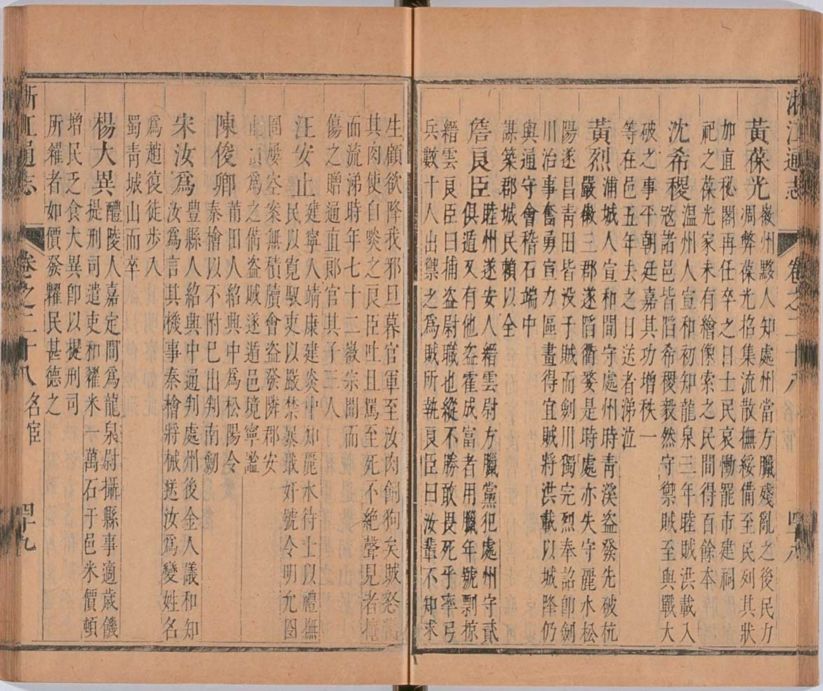 浙江通志 卷之二十八 名宦 四十八
黃葆光 徽州黟人知處州當方臘殘亂之後民力
凋弊葆光招集流散撫綏備至民列其狀
加直秘閣再任卒之日士民哀慟罷市建祠
祀之葆光家未有繪像索之民間得百餘本
沈希稷 溫州人宣和初知龍泉三年睦賊洪載入
寇諸邑皆陷希稷毅然守禦賊至與戰大
破之事平朝廷嘉其功增秩一
等在邑五年去之日送者涕泣
黃烈 浦城人宣和間守處州時青溪盜發先破杭
嚴歙三郡遂陷衢婺是時處亦失守麗水松
陽遂昌青田皆沒于賊而劍川獨完烈奉詔即劍
川治事奮勇宣力區畫得宜賊將洪載以城降仍
與通守會稽石端中
謀築郡城民賴以全
詹良臣 睦州遂安人縉雲尉方臘黨犯處州守貳
俱遁又有他盜霍成富者用臘年號剽掠
縉雲良臣曰捕盜尉職也縱不勝敢畏死乎率弓
兵數十人出禦之為賊所執良臣曰汝輩不知求
生顧欲降我邪旦暮官軍至汝肉飼狗矣賊怒臠
其肉使自啖之良臣吐且罵至死不絕聲見者掩
面流涕時年七十二徽宗聞而
傷之贈通直郎官其子三人
汪安止 建寧人靖康建炎中知麗水待士以禮撫
民以寬馭吏以嚴禁暴戢奸號令明允囹
圄屢空案無積牘會盜發隣郡安
止 為之備盜賊遂遁邑境寧謐
陳俊卿 莆田人紹興中為松陽令
秦檜以不附已出判南劍
宋汝為 豐縣人紹興中通判處州後金人議和知
汝為言其機事秦檜將械送汝為變姓名
為趙復徒步入
蜀青城山而卒
楊大異 醴陵人嘉定間為龍泉尉攝縣事適歲饑
提刑司遣吏和糴米一萬石于邑米價頓
增民乏食大異即以提刑司
所糴者如價發糶民甚德之
浙江通志 卷之二十八 名宦 四十九